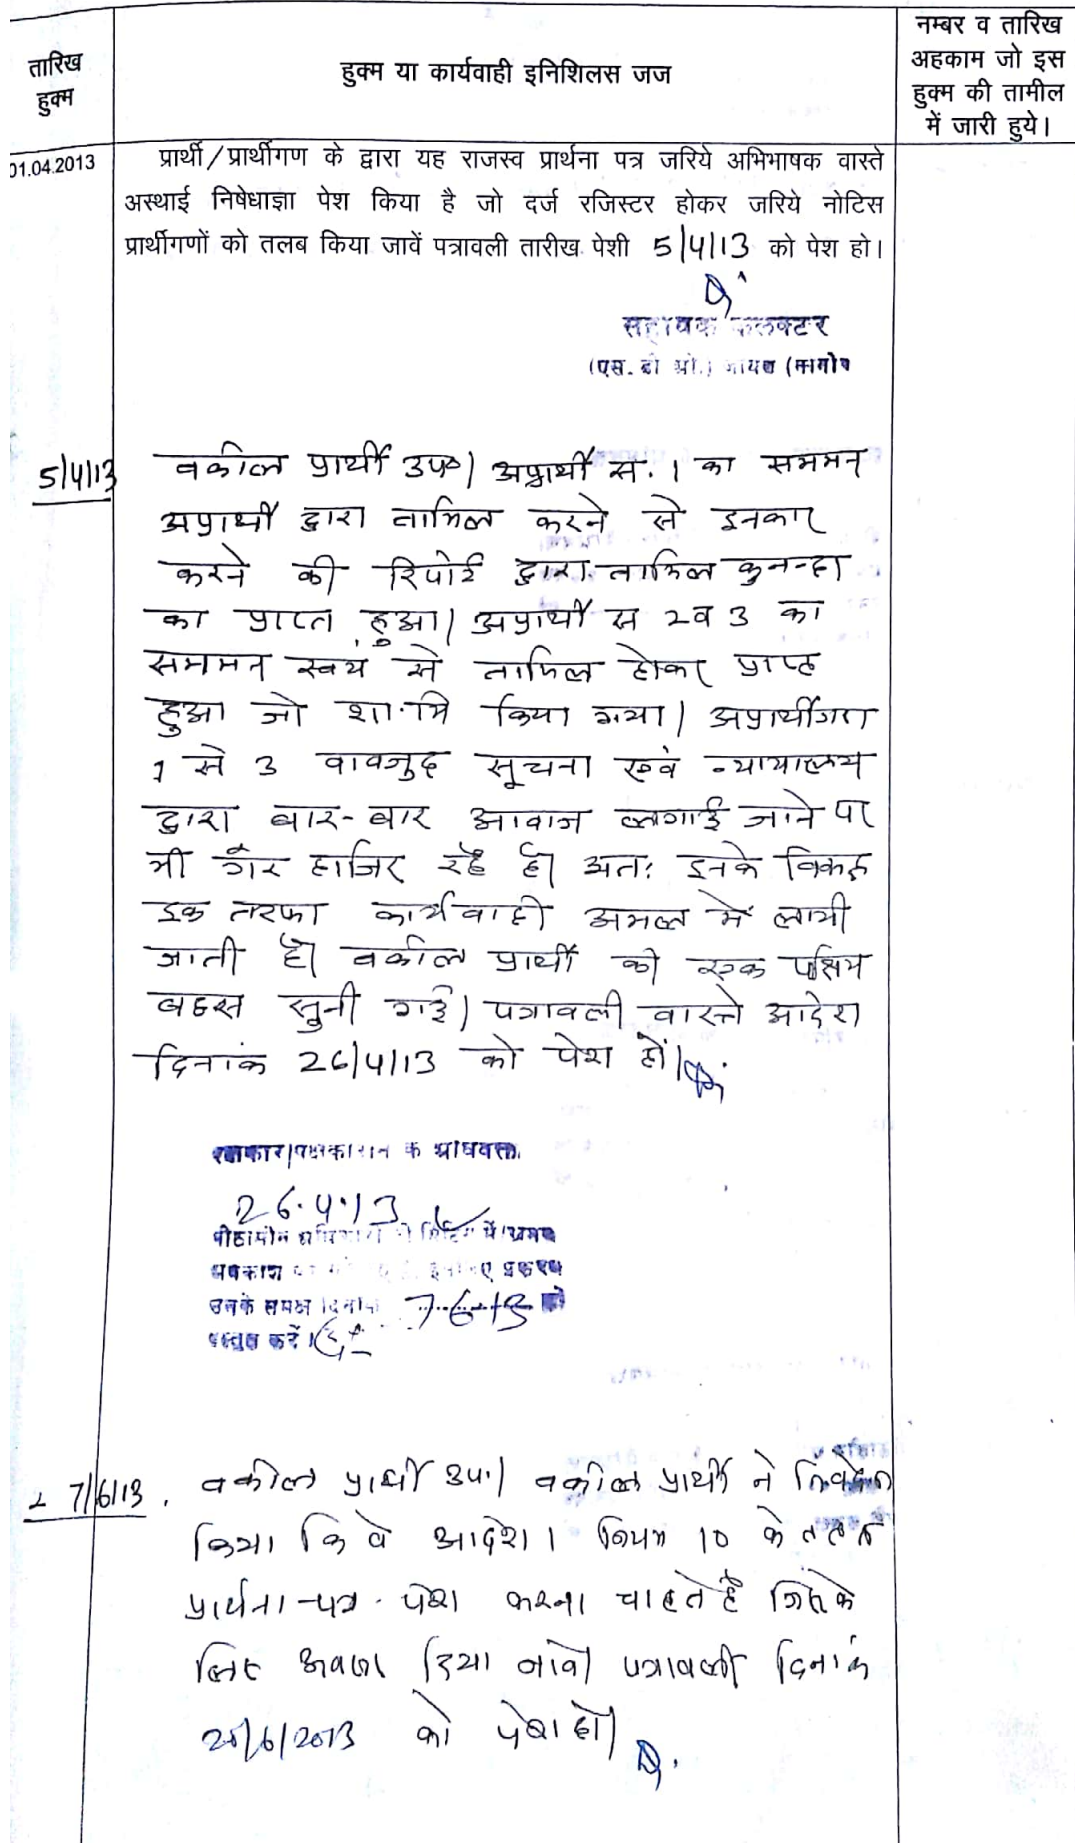 तारिख
हुक्म
हुक्म या कार्यवाही इनिशिलस जज
नम्बर व तारिख
अहकाम जो इस
हुक्म की तामील
में जारी हुये।
01.04.2013
प्रार्थी/प्रार्थीगण के द्वारा यह राजस्व प्रार्थना पत्र जरिये अभिभाषक वास्ते
अस्थाई निषेधाज्ञा पेश किया है जो दर्ज रजिस्टर होकर जरिये नोटिस
प्रार्थीगणों को तलब किया जावें पत्रावली तारीख पेशी 5/4/13 को पेश हो।
सहायक कलक्टर
(एस. डी ओ.) जायल (नागौर
5/4/13
वकील प्रार्थी उप०। अप्रार्थी स. 1 का सममन
अप्रार्थी द्वारा तामिल करने से इनकार
करने की रिपोर्ट द्वारा तामिल कुनन्दा
का प्राप्त हुआ। अप्रार्थी स 2 व 3 का
सममन स्वय से तामिल होकर प्राप्त
हुआ जो शा.मि किया गया। अप्रार्थीगण
1 से 3 वावजुद सूचना एवं न्यायालय
द्वारा बार-बार आवाज लगाई जाने पर
भी गैर हाजिर रहे है। अतः इनके विरूद्ध
इक तरफा कार्यवाही अमल में लायी
जाती है। वकील प्रार्थी की एक पक्षिय
बहस सुनी गई। पत्रावली वास्ते आदेश
दिनांक 26/4/13 को पेश हों।
26.4.13
उनके समक्ष दिनांक 7-6-13 को
प्रस्तुत करें।
7/6/13.
वकील प्रार्थी उप.। वकील प्रार्थी ने निवेदन
किया कि वे आदेश 1 नियम 10 के तहत
प्रार्थना-पत्र पेश करना चाहते है जिसके
लिए अवसर दिया जावे। पत्रावली दिनांक
/6/2013 को पेश हो।